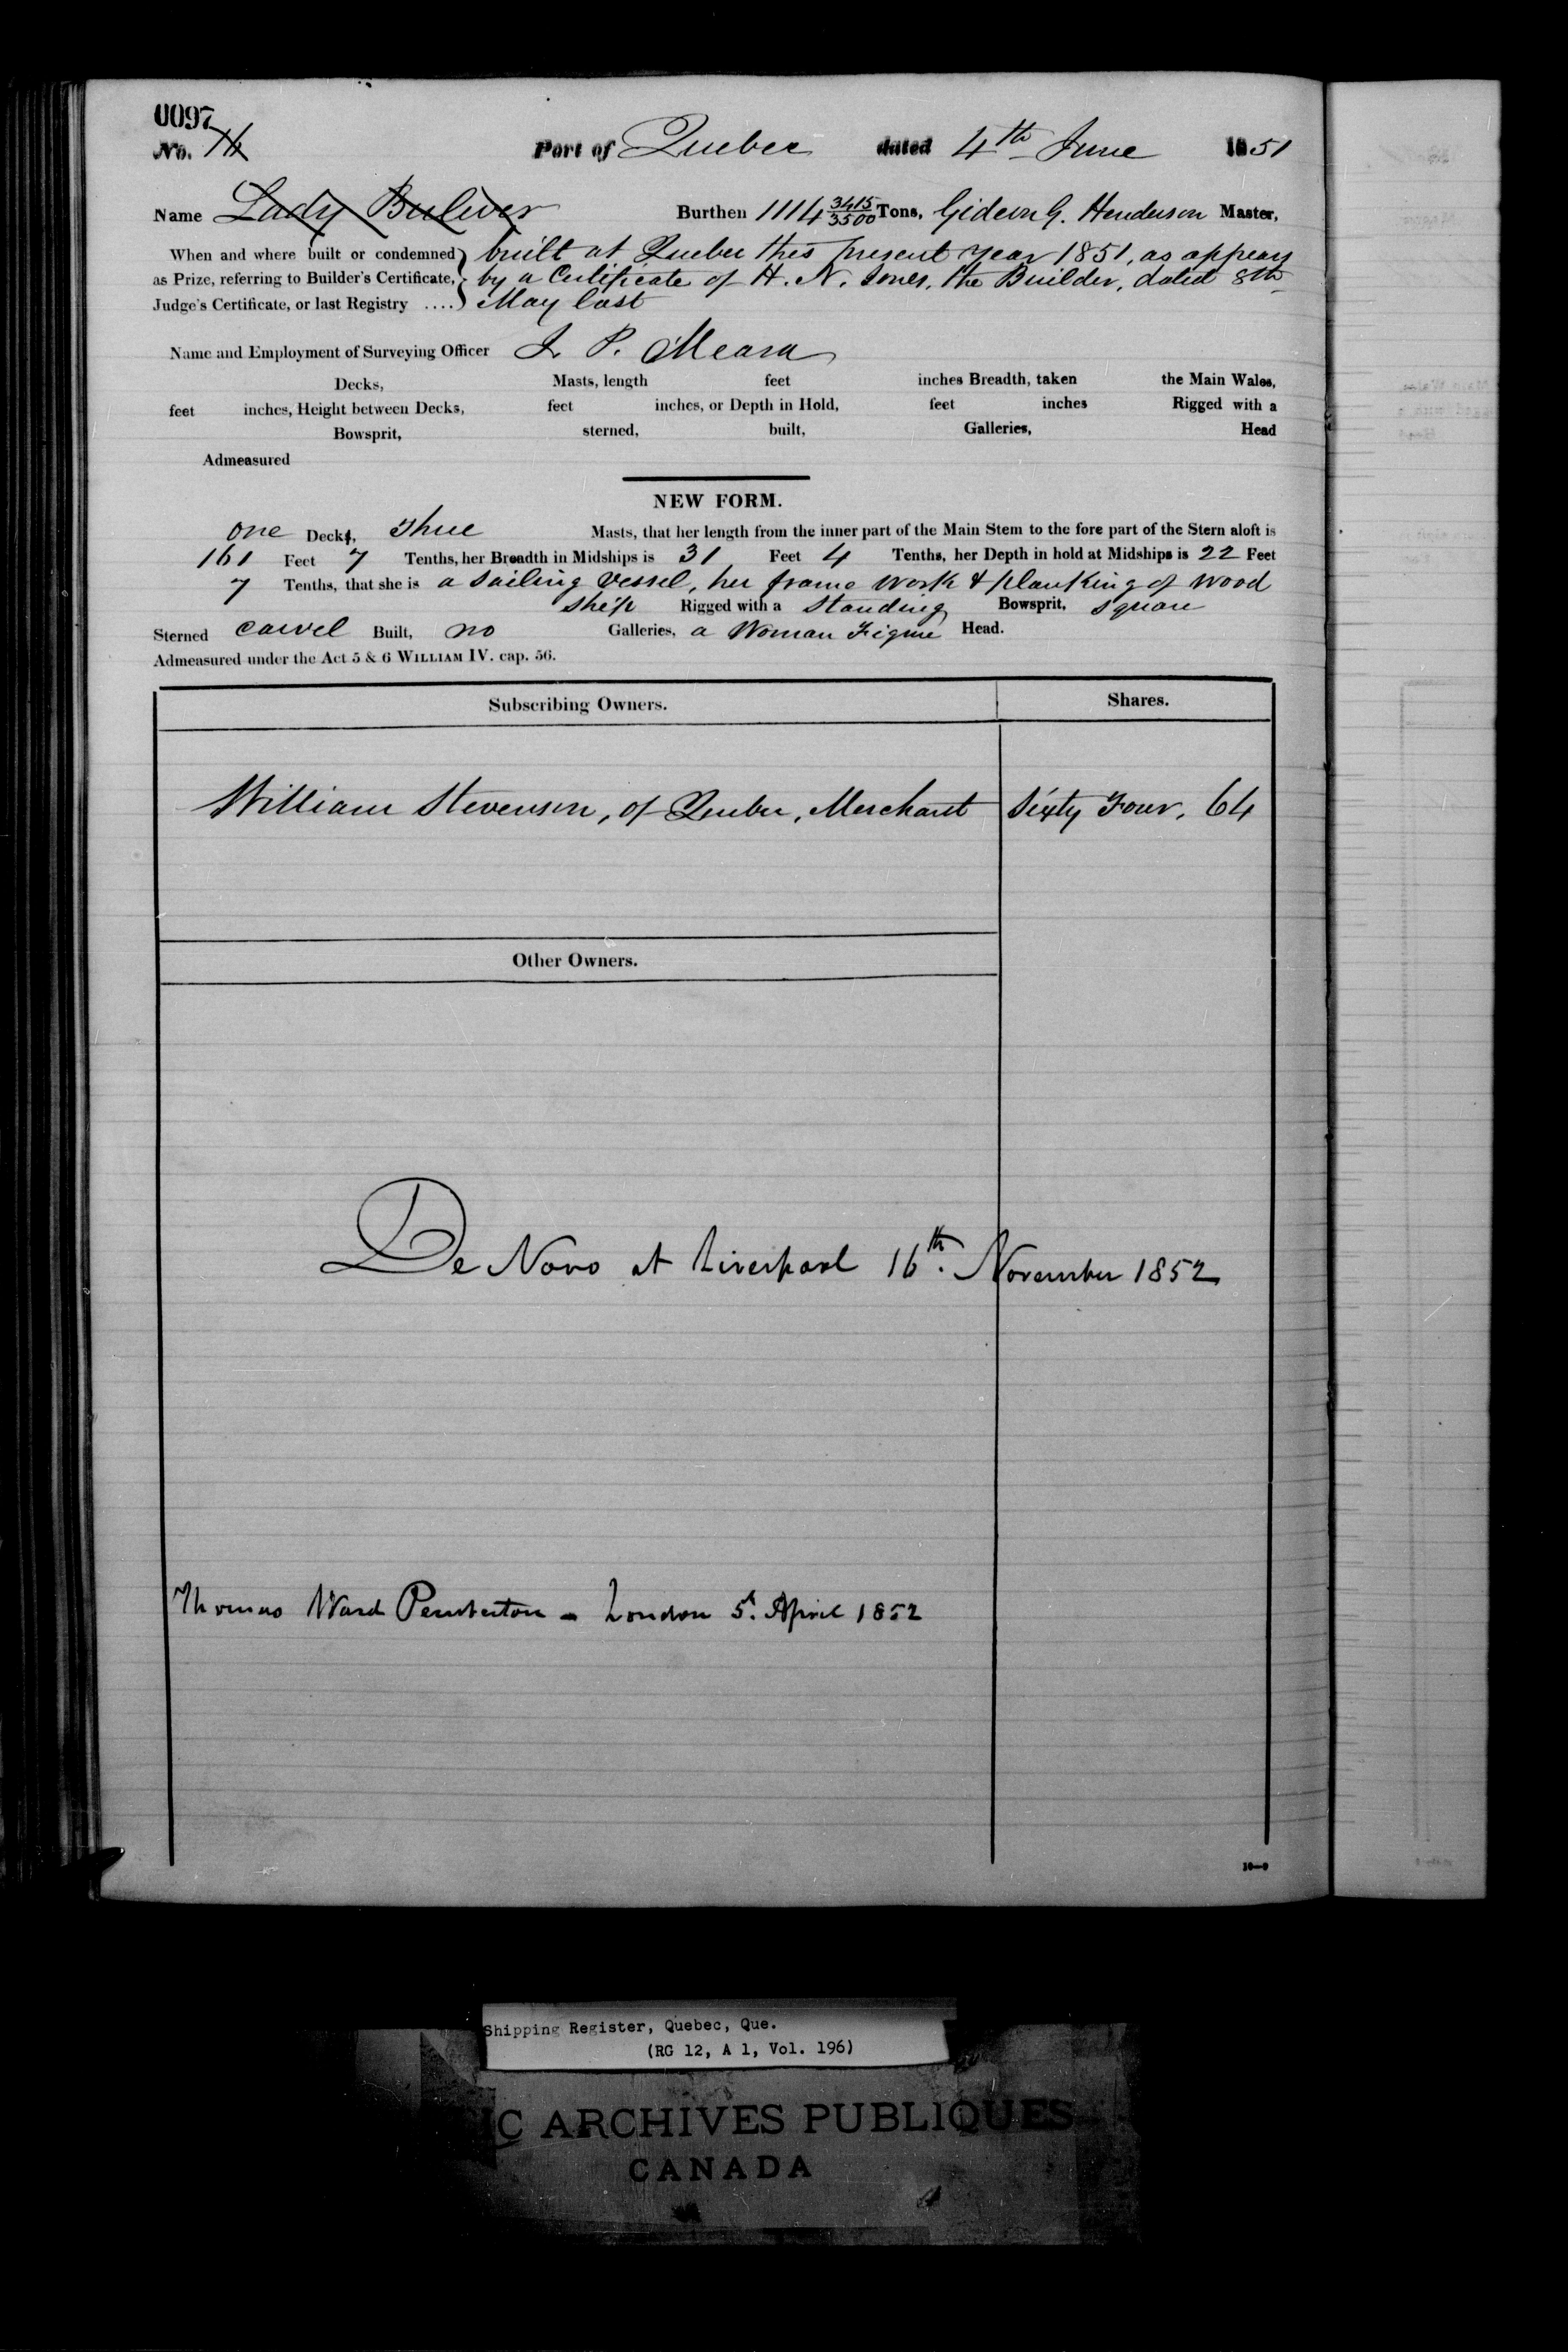 0097
No. 76
Port of Quebec dated 4th June 1851
Name Lady Bulwer Burthen 1114 3415/3500 Tons, Gideon G. Henderson Master,
When and where built or condemned as Prize, referring to Builder's Certificate, Judge's Certificate, or last Registry ....
built at Quebec this present year 1851, as appears
by a Certificate of H. N. Jones, the Builder, dated 8th
May last
Name and Employment of Surveying Officer J. P. Meara
Decks, Masts, length feet inches Breadth, taken the Main Wales,
feet inches, Height between Decks, feet inches, or Depth in Hold, feet inches Rigged with a
Bowsprit, sterned, built, Galleries, Head
Admeasured
NEW FORM.
one Decks, Three Masts, that her length from the inner part of the Main Stem to the fore part of the Stern aloft is
161 Feet 7 Tenths, her Breadth in Midships is 31 Feet 4 Tenths, her Depth in hold at Midships is 22 Feet
7 Tenths, that she is a sailing vessel, her frame work & planking of wood
ship Rigged with a standing Bowsprit, square
Sterned carvel Built, no Galleries, a Woman Figure Head.
Admeasured under the Act 5 & 6 WILLIAM IV. cap. 56.
Subscribing Owners. Shares.
William Stevenson, of Quebec, Merchant Sixty Four, 64
Other Owners.
De Novo at Liverpool 16th. November 1852
Thomas Ward Pemberton - London 5. April 1852
10—9
Shipping Register, Quebec, Que.
(RG 12, A 1, Vol. 196)
IC ARCHIVES PUBLIQUES
CANADA